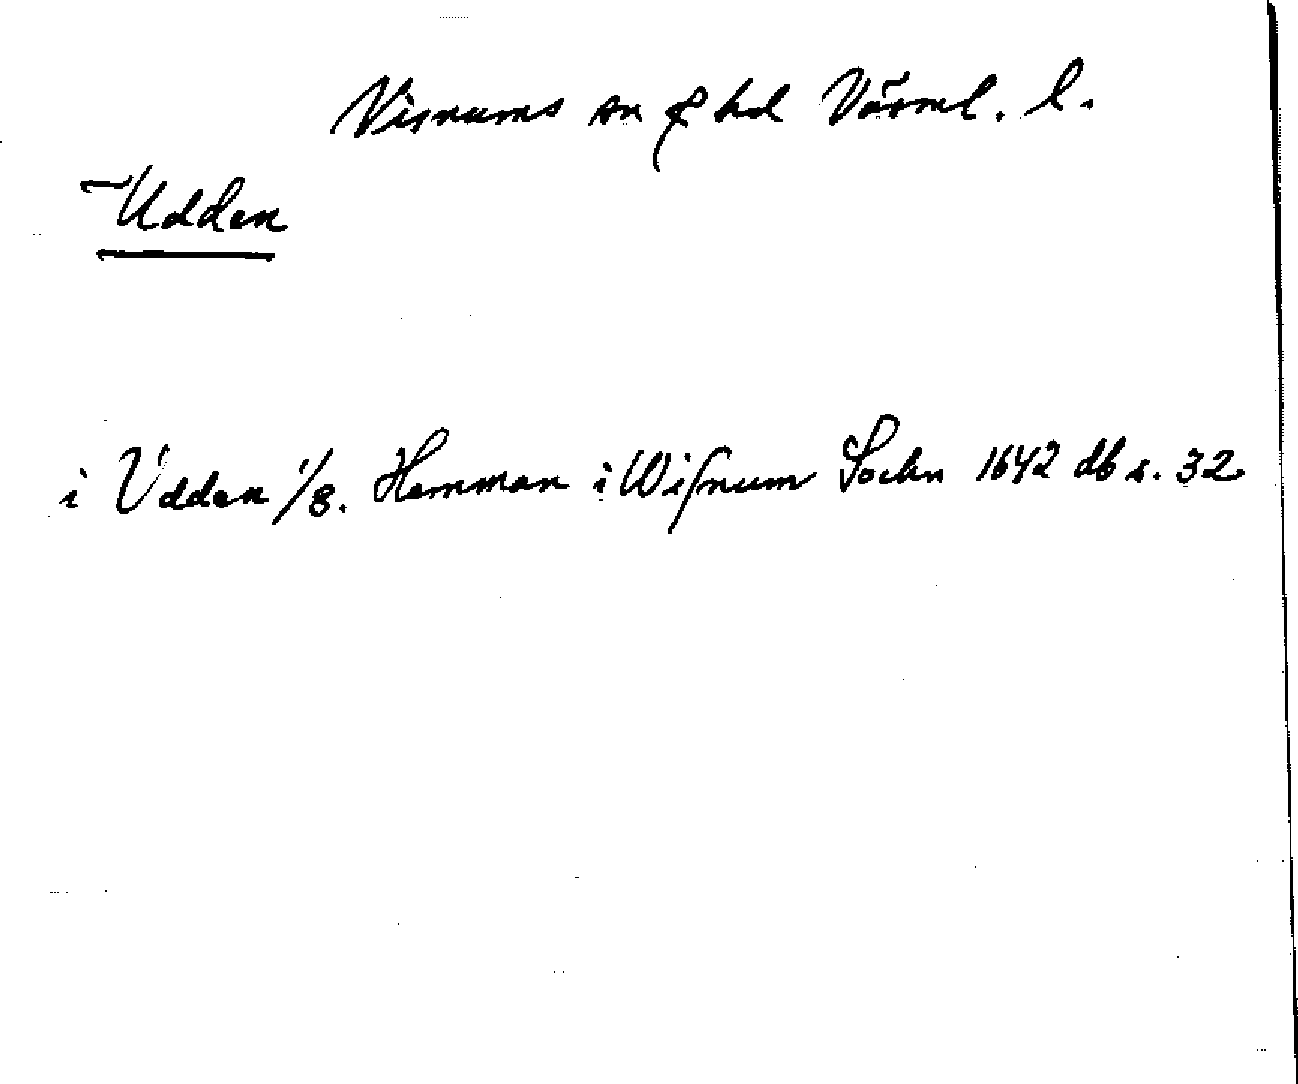 Visnums sn & hd Värml. l.
Udden
i Udden 1/8. Hemman i Wisnum Sochn 1642 db s. 32